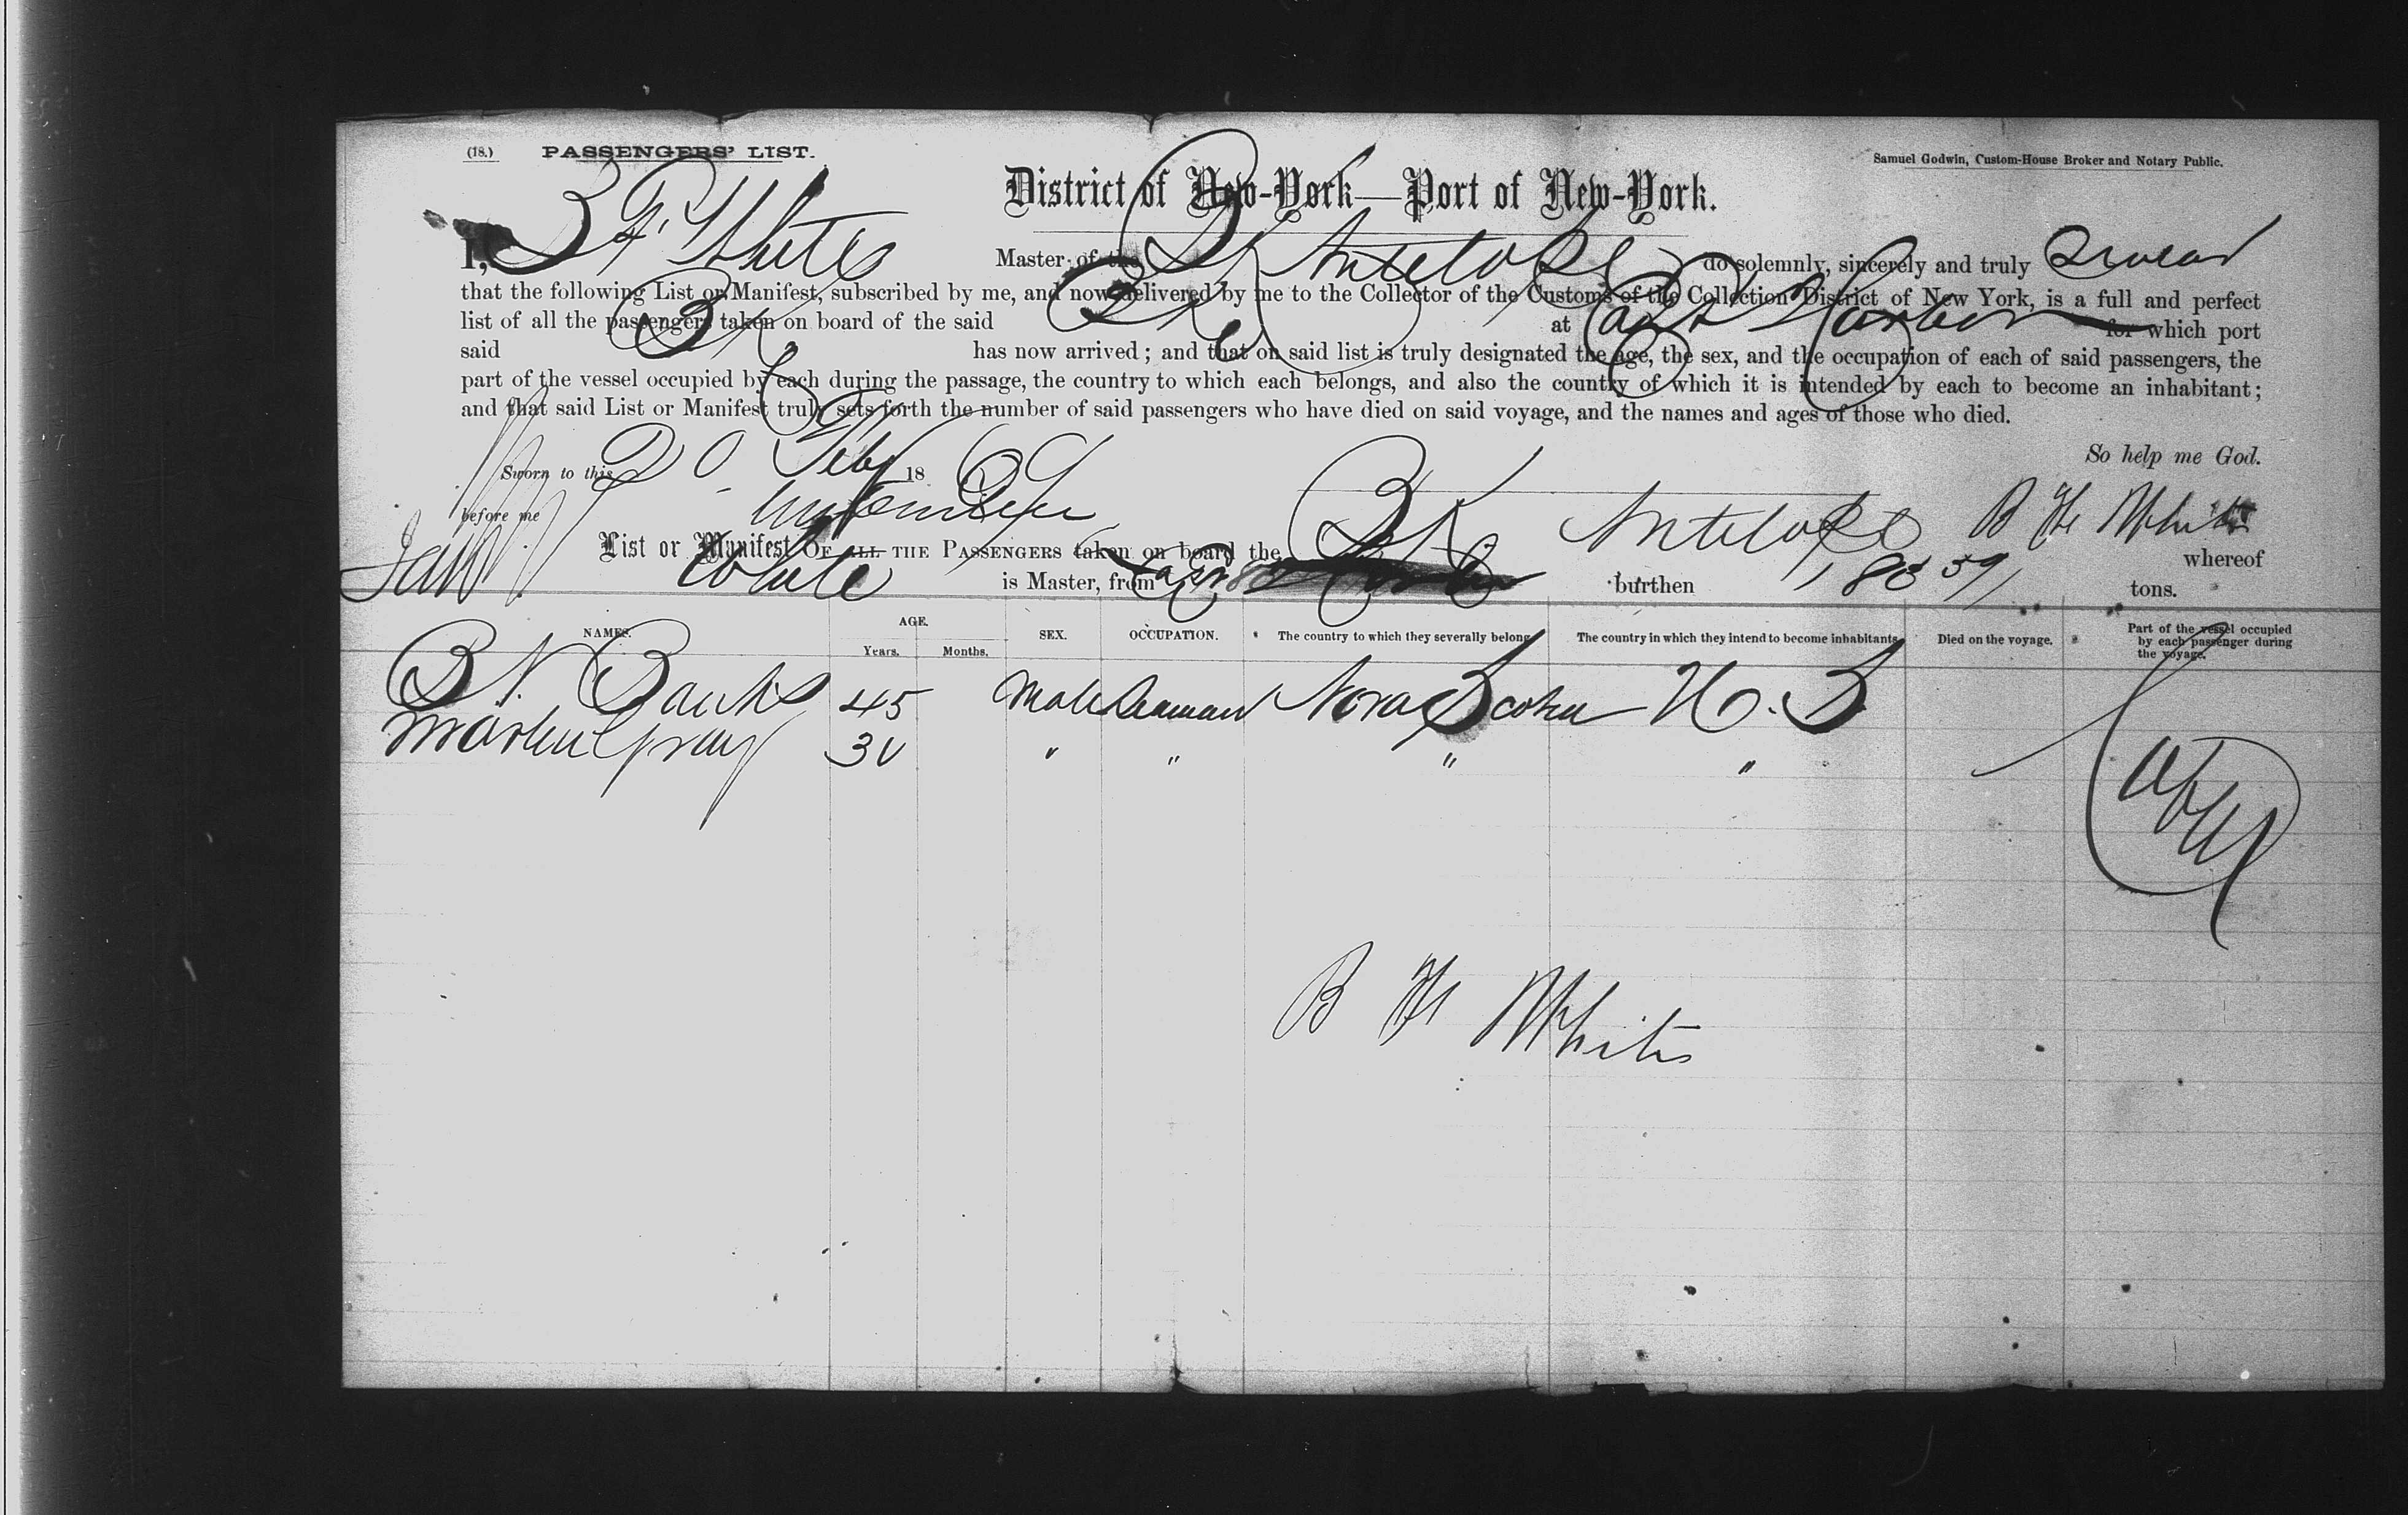 (18.) PASSENGERS' LIST.
Samuel Godwin, Custom-House Broker and Notary Public.
District of New-York—Port of New-York.
I, B F White Master of the Bk Antelope do solemnly, sincerely and truly swear
that the following List or Manifest, subscribed by me, and now delivered by me to the Collector of the Customs of the Collection District of New York, is a full and perfect
list of all the passengers taken on board of the said Bk at Harbor for which port
said Bk has now arrived; and that on said list is truly designated the age, the sex, and the occupation of each of said passengers, the
part of the vessel occupied by each during the passage, the country to which each belongs, and also the country of which it is intended by each to become an inhabitant;
and that said List or Manifest truly sets forth the number of said passengers who have died on said voyage, and the names and ages of those who died.
So help me God.
Sworn to this 20 Feby 1869
before me
B F White
List or Manifest OF ALL THE PASSENGERS taken on board the Bk Antelope whereof
White is Master, from burthen tons.
NAMES. AGE. Years. Months. SEX. OCCUPATION. The country to which they severally belong. The country in which they intend to become inhabitants. Died on the voyage. Part of the vessel occupied by each passenger during the voyage.
B N. Banks 45 Male Seaman Nova Scotia U. S
Martin Gray 30 " " " "
B F White